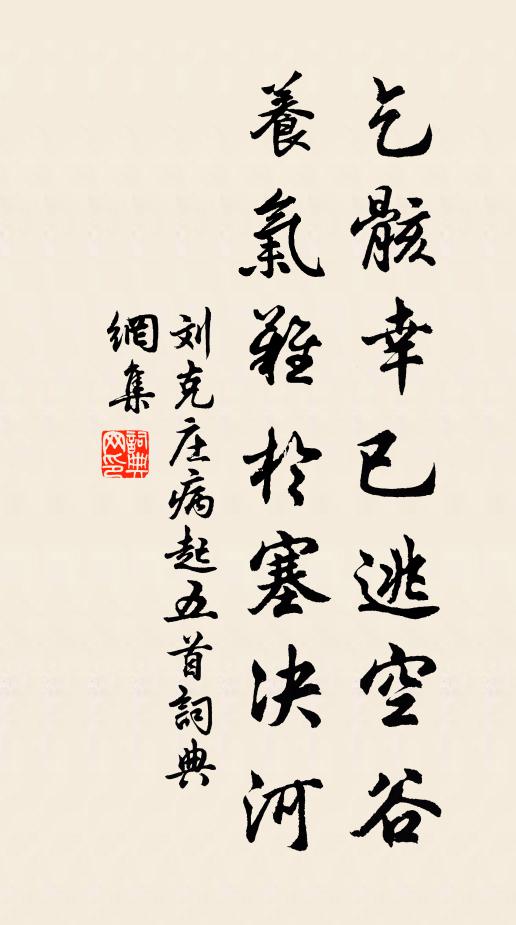 乞骸幸已逃空谷
養氣難於塞決河
刘克庄病起五首詞典
網集
詞典
网印